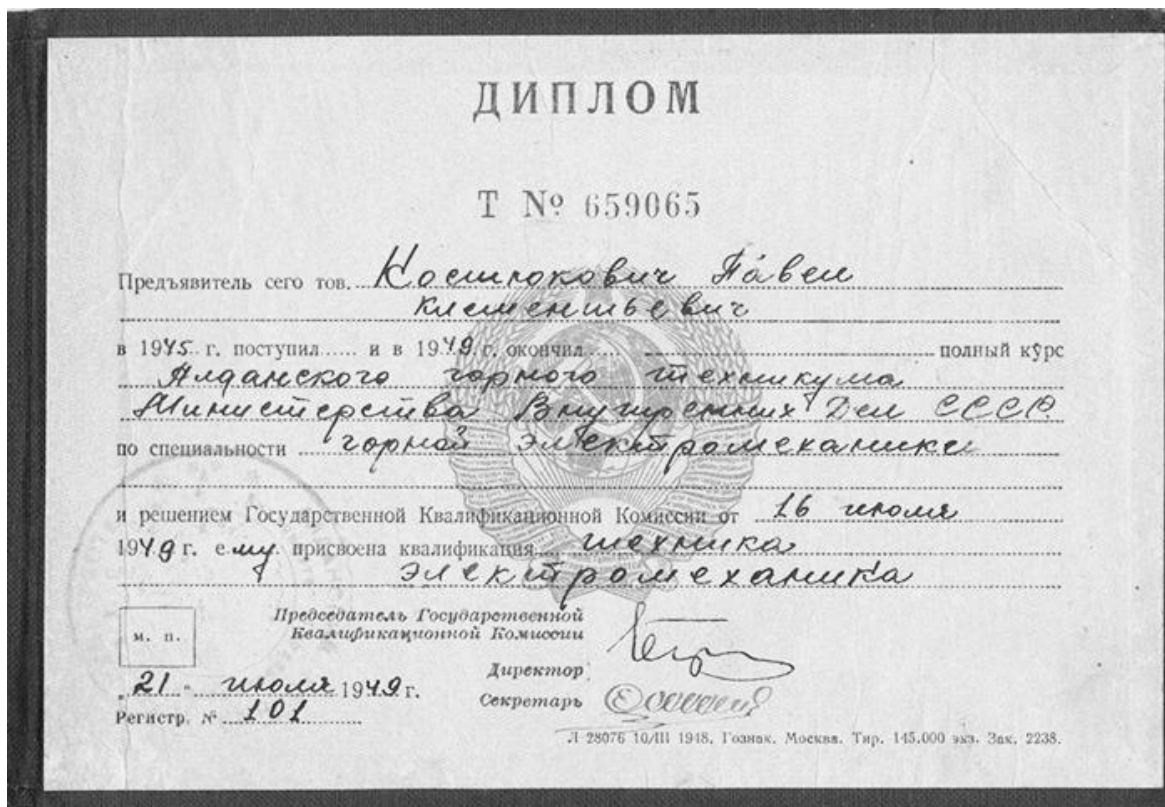 ДИПЛОМ
Т № 659065
Предъявитель сего тов. Костюкович Павел
Клементьевич
в 1945 г. поступил и в 1949 г. окончил полный курс
Алданского горного техникума
Министерства Внутренних Дел СССР
по специальности горной электромеханики
и решением Государственной Квалификационной Комиссии от 16 июля
1949 г. ему присвоена квалификация техника
электромеханика
Председатель Государственной
Квалификационной Комиссии
м. п.
Директор
„21“ июля 1949 г.
Секретарь
Регистр. № 101
Л 28076 10/III 1948. Гознак. Москва. Тир. 145.000 экз. Зак. 2238.